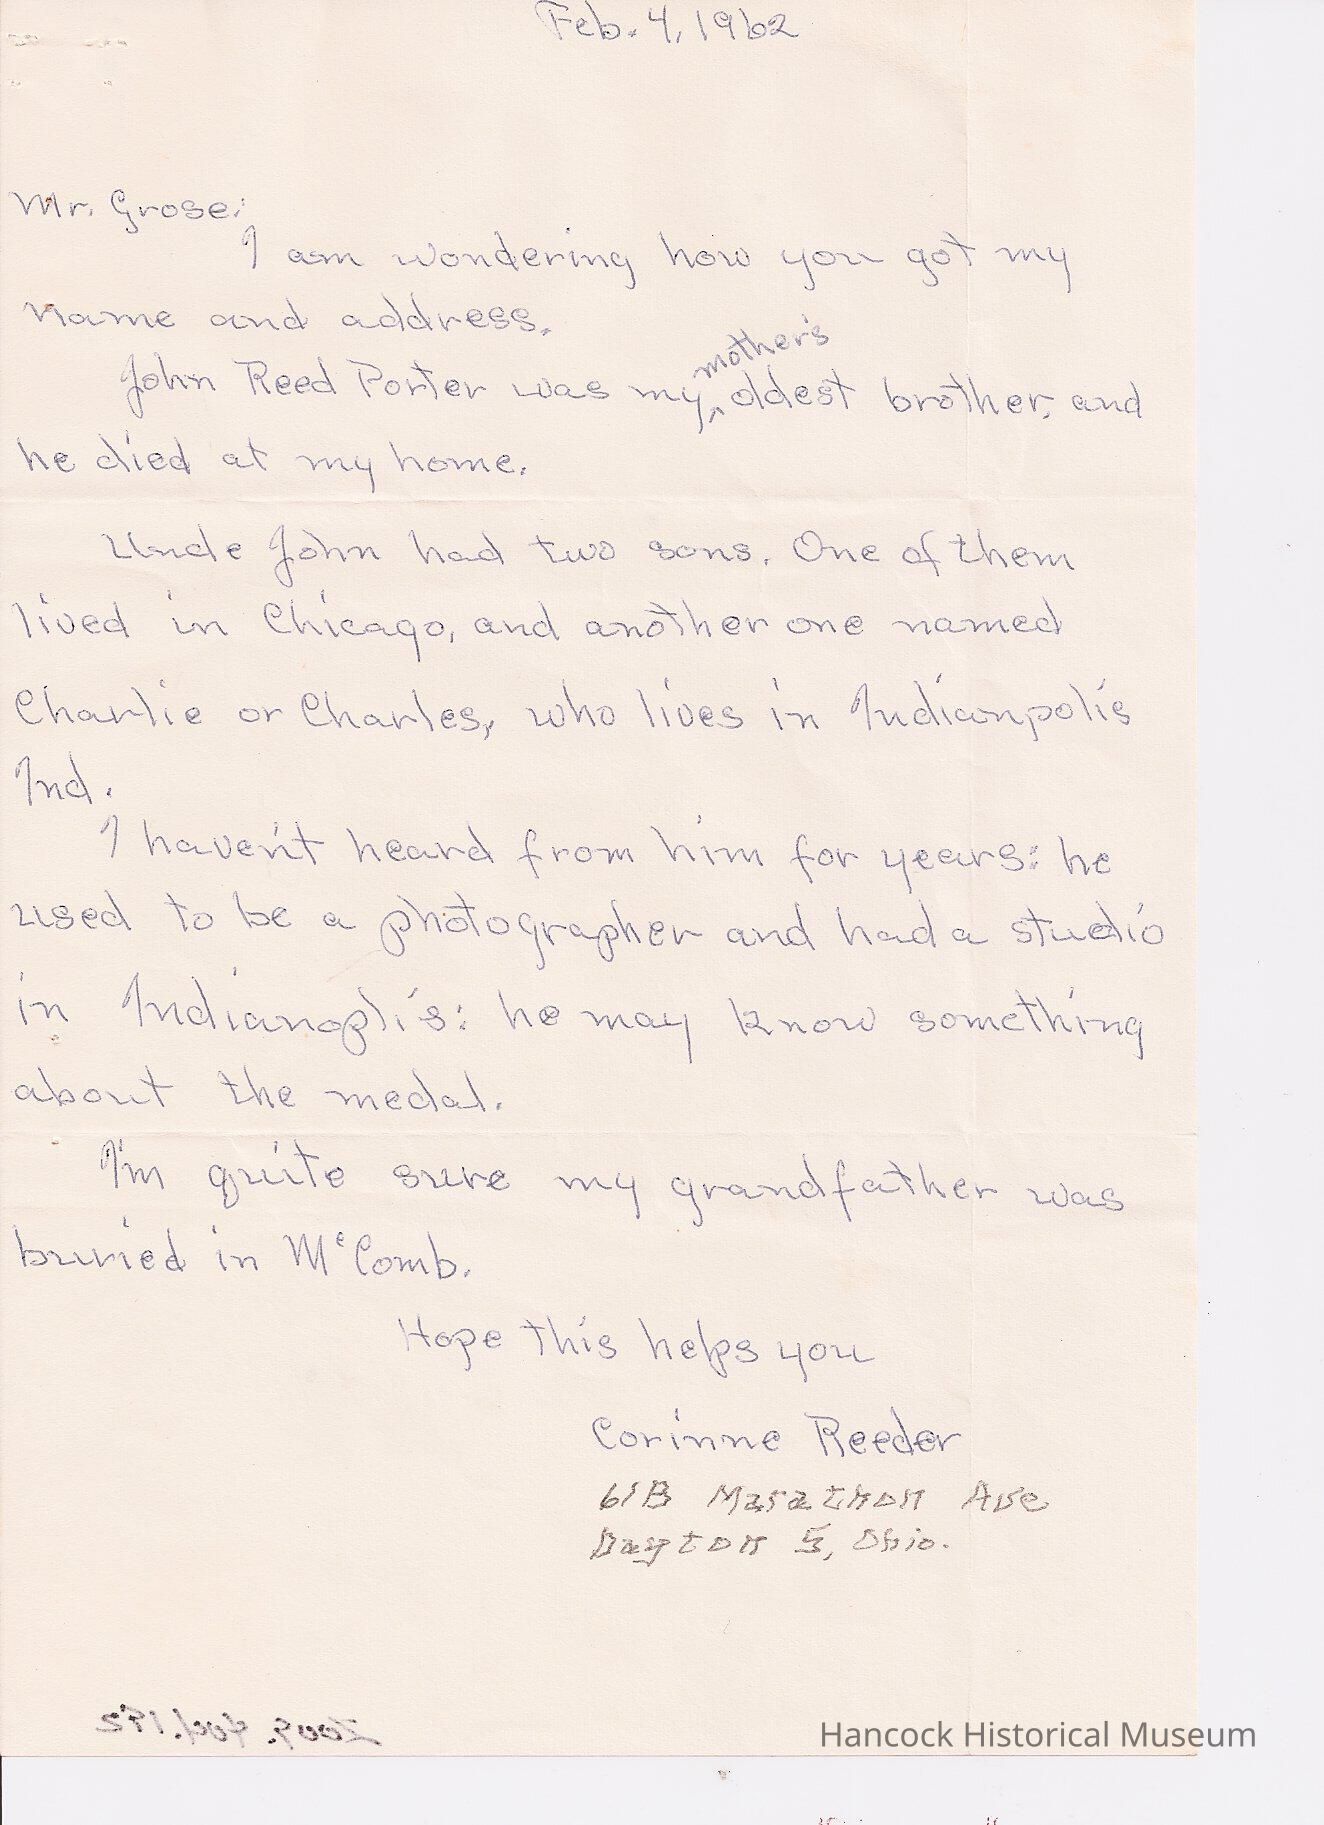 Feb. 4, 1962
Mr. Grose:
I am wondering how you got my
name and address.
John Reed Porter was my mother's oldest brother, and
he died at my home.
Uncle John had two sons. One of them
lived in Chicago, and another one named
Charlie or Charles, who lives in Indianpolis
Ind.
I haven't heard from him for years: he
used to be a photographer and had a studio
in Indianoplis: he may know something
about the medal.
I'm quite sure my grandfather was
buried in McComb.
Hope this helps you
Corinne Reeder
61B Marathon Ave
Dayton 5, Ohio.
Hancock Historical Museum